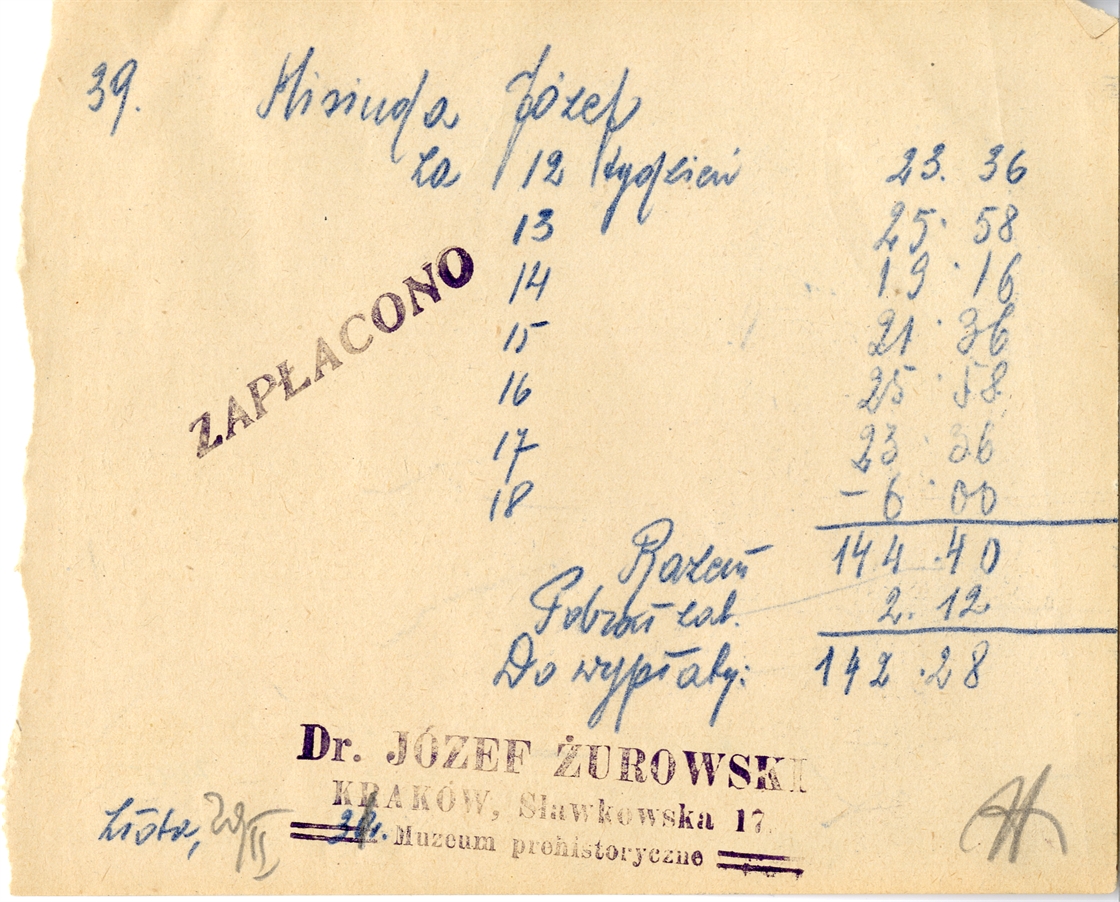 39. Misiuda Józef
za 12 tydzień 23. 36
13 25. 58
14 19. 16
15 21. 36
16 25. 58
17 23. 36
18 - 6. 00
Razem 144.40
Pobrał zal. 2. 12
Do wypłaty: 142.28
ZAPŁACONO
Dr. JÓZEF ŻUROWSKI
KRAKÓW, Sławkowska 17.
Muzeum prehistoryczne
Złota,